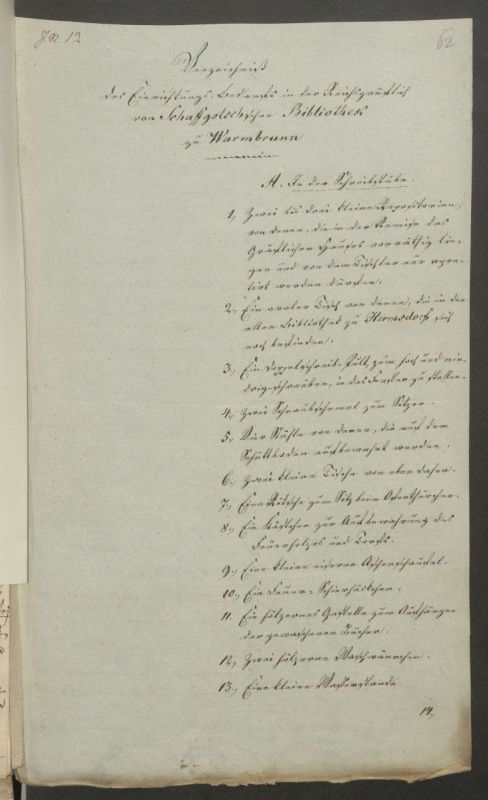 No 12
62
Verzeichniß
des Einrichtungs-Bedarfs in der Reichsgräflich
von Schaffgotschschen Bibliothek
zu Warmbrunn
A. In der Schreibstube.
1, Zwei bis drei kleine Repositorien,
von denen, die in der Remise des
Gräflichen Hauses vorräthig lie-
gen und von dem Tischler nur
werden dürften.
2., Ein ovaler Tisch von denen, die in der
alten Bibliothek zu Hermsdorf sich
noch befinden.
3., Ein Doppelschreibe-Pult, zum hoch und nie-
drig schrauben, in das Fenster zu stellen.
4., Zwei Schraubschemel zum Sitzen.
5., Vier Stühle von denen, die auf dem
Schüttboden aufbewahrt werden.
6., Zwei kleine Tische von eben daher.
7., Eine Hitsche zum Sitz beim Ofenthürchen.
8., Ein Kästchen zur Aufbewahrung des
Feuerholzes und Torfs.
9., Eine kleine eiserne Aschenschaufel.
10., Ein Feuer-Schierhäckchen.
11. Ein hölzernes Gestelle zum Aufhängen
der gewaschenen Tücher.
12, Zwei hölzerne Waschwännchen.
13., Eine kleine Wasserstande
14,